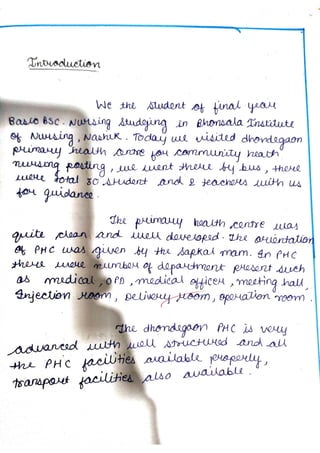 Introduction
We the student of final year
Basic BSC. Nursing studying in Bhonsala Institute
of Nursing, Nashik. Today we visited dhondegaon
primary health centre for community heath
nursing posting, we went there by bus, there
were total 30 student and 2 teachers with us
for guidance.
The primary health centre was
quite clean and well developed. The orientation
of PHC was given by the Sapkal mam. In PHC
there were number of department present such
as medical, OPD, medical officer, meeting hall,
Injection room, Delivery room, operation room.
The dhondegaon PHC is very
advanced with well structured and all
the PHC facilities available properly,
transport facilities also available.